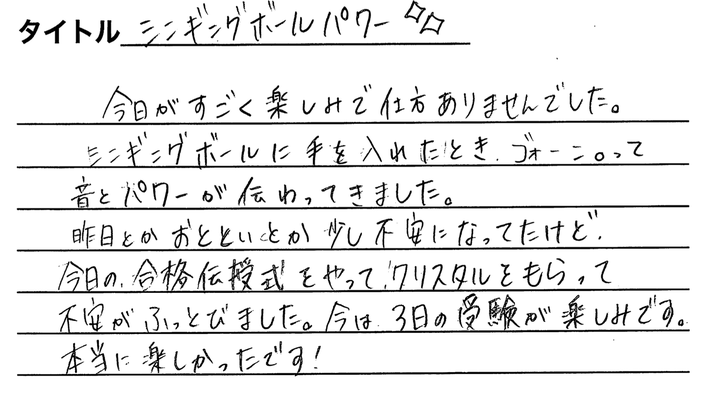 タイトル シンギングボールパワー
今日がすごく楽しみで仕方ありませんでした。
シンギングボールに手を入れたとき、ゴォーン。って
音とパワーが伝わってきました。
昨日とかおとといとか少し不安になってたけど、
今日の、合格伝授式をやって、クリスタルをもらって
不安がふっとびました。今は、3日の受験が楽しみです。
本当に楽しかったです!